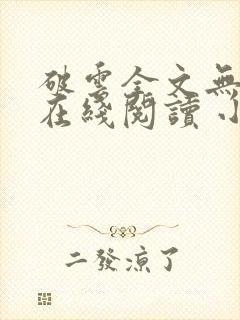 破雲全文無
在綫閱讀 小
二發涼了